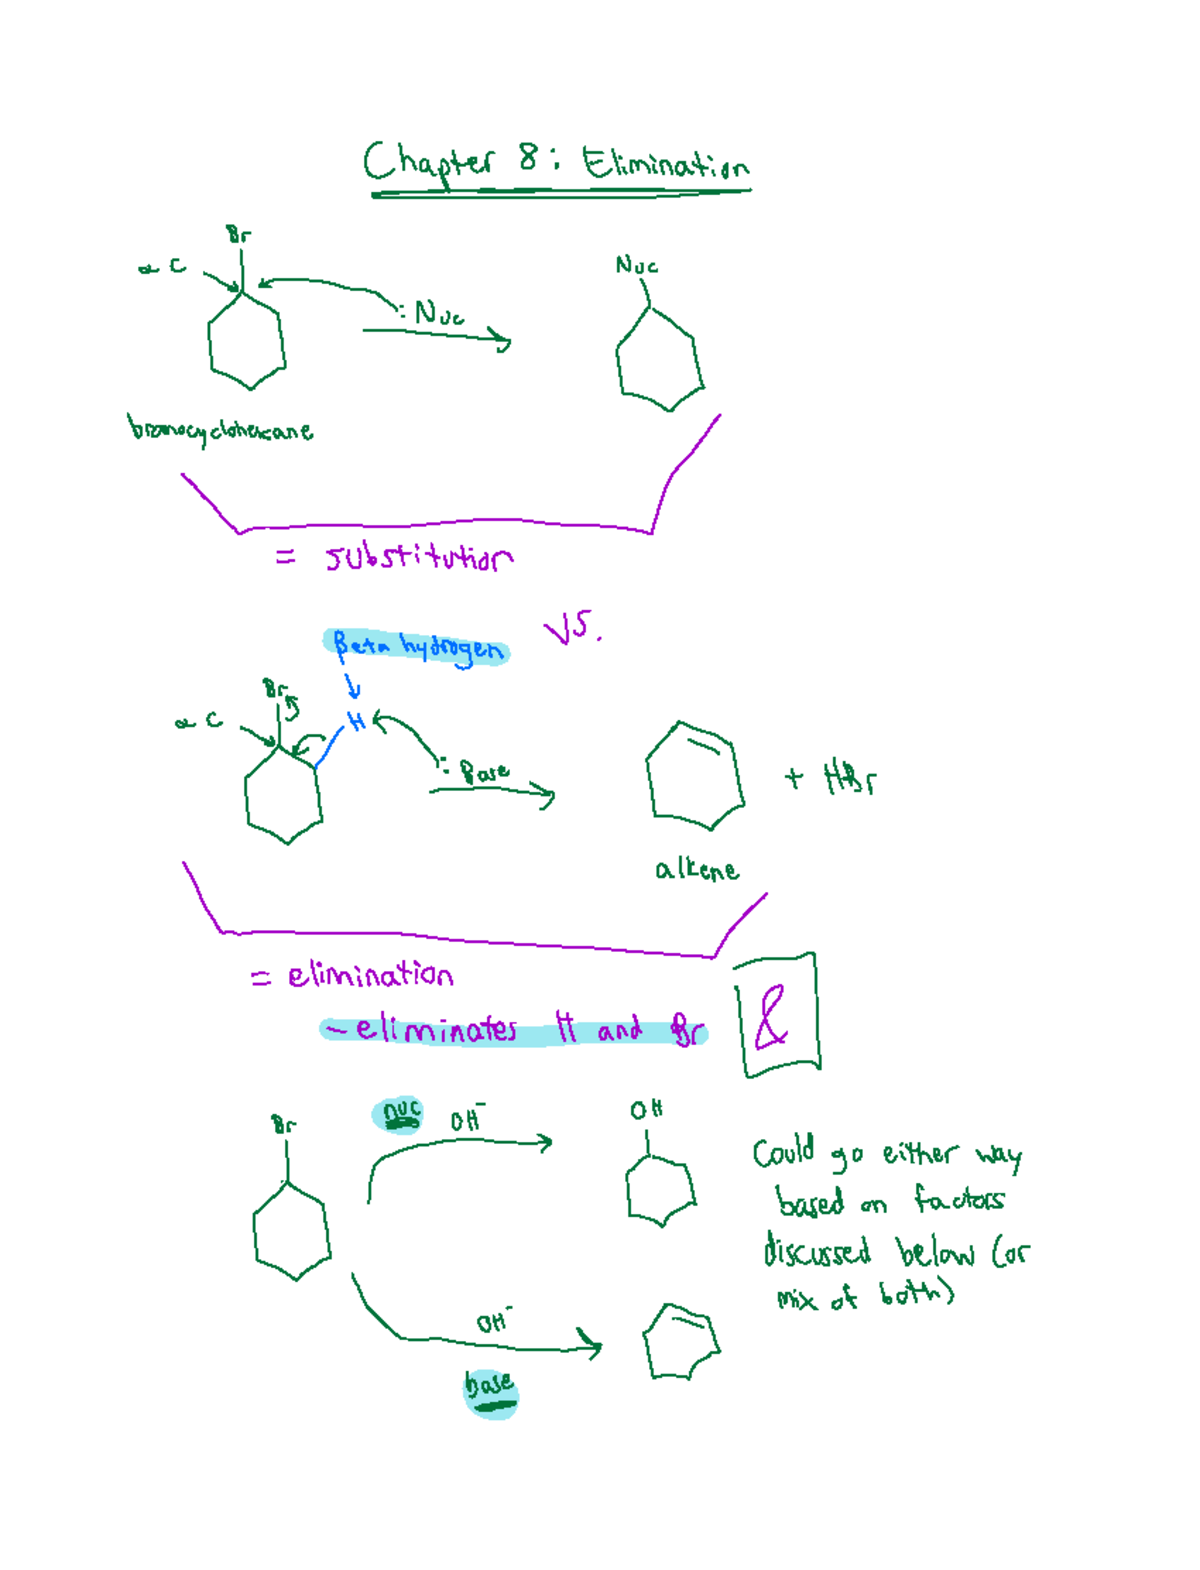 Chapter 8: Elimination
Br
α C
:Nuc
Nuc
bromocyclohexane
= substitution
vs.
Beta hydrogen
Br
α C
H
:Base
+ HBr
alkene
= elimination
- eliminates H and Br
&
nuc
OH⁻
Br
OH
Could go either way
based on factors
discussed below (or
mix of both)
OH⁻
base